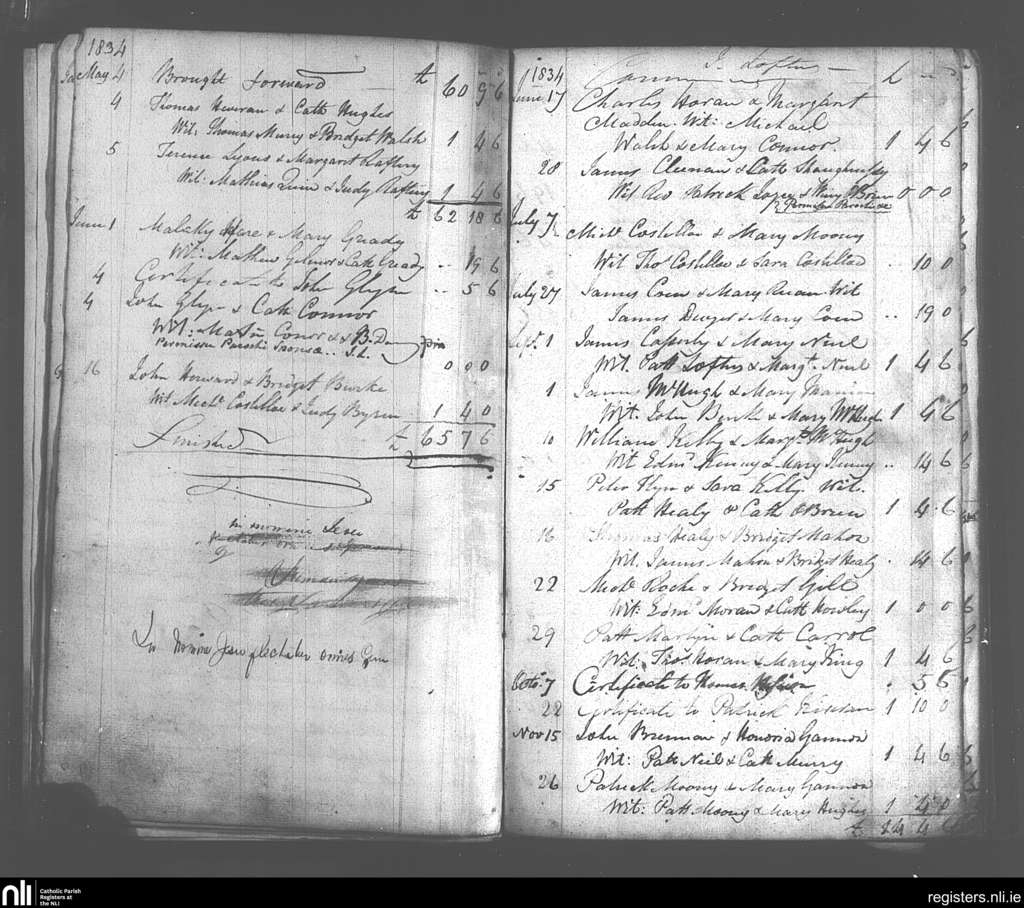 1834
May 4 Brought forward £ 60 9 6
4 Thomas & Cath Hughes
Wit: Thomas Murry & Bridget Walsh 1 4 6
5 Terence Lyons & Margaret Raftery
Wit: Mathias Quin & Judy Raftery 1 4 6
£ 62 18 6
June 1 Malachy Hare & Mary Grady
Wit: Mathew & Cath Grady .. 19 6
4 Certificate to John Glynn .. 5 6
4 John Glynn & Cath Connor
Wit: Connor & B.
Permissu Parochi 0 0 0
16 John Howard & Bridget Burke
Wit Michl Costelloe & Judy Byrne 1 4 0
Finished £ 65 7 6
in nomine Jesu
In nomine Jesu flectatur omne genu
1834 P. Loftus £
June 17 Charles Horan & Margaret
Madden. Wit: Michael
Walsh & Mary Connor. 1 4 6
28 James & Cath Shaughnessy
Wit Rev Patrick & Winny OBrien 0 0 0
July 7 Michl Costelloe & Mary Moony
Wit Thos Costelloe & Sara Costelloe .. 10 0
July 27 James Coen & Mary Ruan Wit
James Dwyer & Mary Coen .. 19 0
Sept. 1 James Cafferty & Mary Neil
Wit. Patt Loftus & Margt. Neil 1 4 6
1 James McHugh & Mary
Wit. John Burke & Mary McHugh 1 4 6
10 William Kelly & Margt. McHugh
Wit Edmd Kenny & Mary Kenny .. 14 6
15 Peter Flyn & Sara Kelly. Wit.
Patt Healy & Cath OBrien 1 4 6
16 Thomas Healy & Bridget Mahon
Wit. James Mahon & Bridget Healy . 14 6
22 Michl Roche & Bridget Gill
Wit: Edmd Moran & Cath Howley 1 0 0
29 Patt Martyn & Cath Carrol
Wit: Thos. Horan & Mary King 1 4 6
Octo. 7 Certificate to . 5 6
22 Certificate to Patrick 1 10 0
Nov 15 John Brennan & Honoria Gannon
Wit: Patt Neil & Cath Murry 1 4 6
26 Patrick Moony & Mary Gannon
Wit: Patt Moony & Mary Hughes 1 4 0
£ 14 4 6
nli
Catholic Parish
Registers at
the NLI
registers.nli.ie